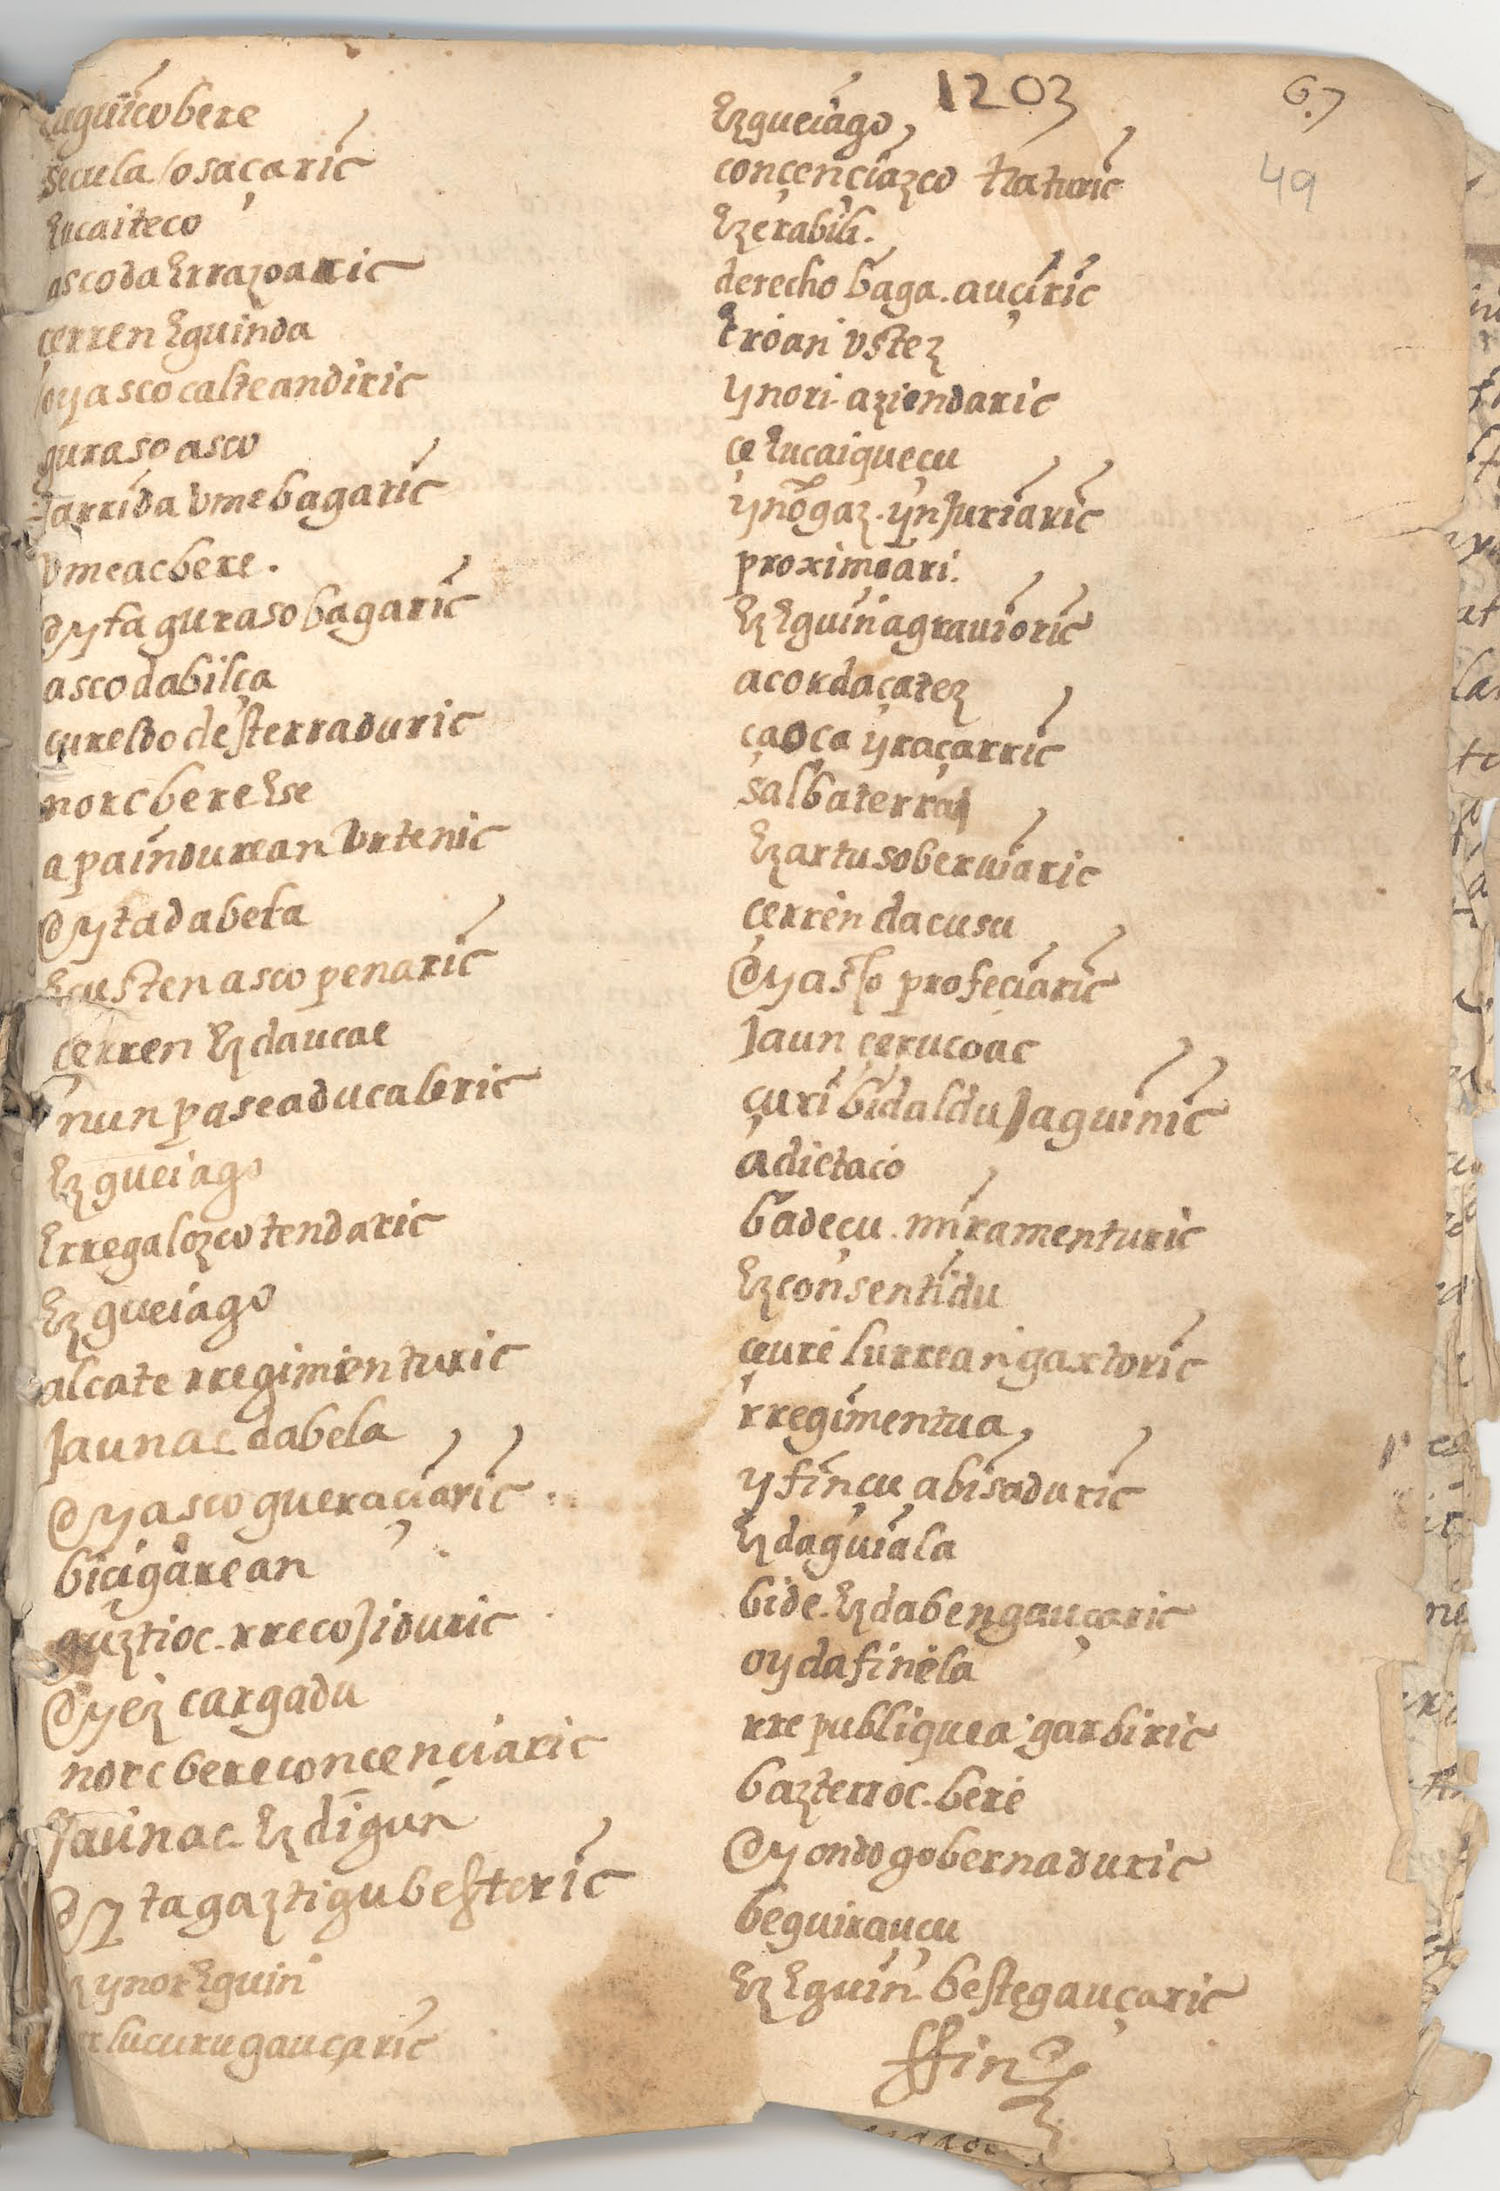 1203
67
49
eguicobere
secula losaçaric
Eucaiteco
ascoda Errazoarric
çerren Eguinda
oyascocalteandiric
guraso asco
Jarrida vmebagaric
vmeacbere.
Oyta gurasobagaric
ascodabilça
çureldo desterraduric
norcbere Ese
apaindurean vrtenic
Oytadabela
Ecusten asco penaric
çerren Ezdaucae
nun paseaducaleric
Ezgueiago
Erregalozco tendaric
Ezgueiago
alcate rregimienturic
Jaunac dabela
Oyasco gueraçiaric
biçigarean
guztioc. rrecojiduric
Oyez cargadu
norcbereconcenciaric
Jaunac Ezdigun
Oyta gaztigu besteric
Ez ynor Eguin
lucurugauçaric
Ezgueiago,
conçençiazco tratturic
Ezerabili.
derecho baga. auçiric
Erioan vstez
ynori. aziendaric
çe Eucaiqueçu
ynogaz. ynJuriaric
proximoari.
Ez Eguin agrauioric
acordaçatez
çaoça yraçarric
salbaterrai
Ezartu soberuiaric
çerren dacusu
Oyaslo profeciaric
Jaun çerucoac
çuri bidaldu Jaguinic
adietaco
badeçu. miramenturic
Ezconsentidu
çeure lurrean gaxtoric
rregimentua,
yfinçu abisaduric
Ezdaguiala
bide. Ezdabengauçaric
oydafinela
rrepubliquea garbiric
bazterroc. bere
Oyondo gobernaduric
beguirauçu
Ez Eguin besteçauçaric
ffin